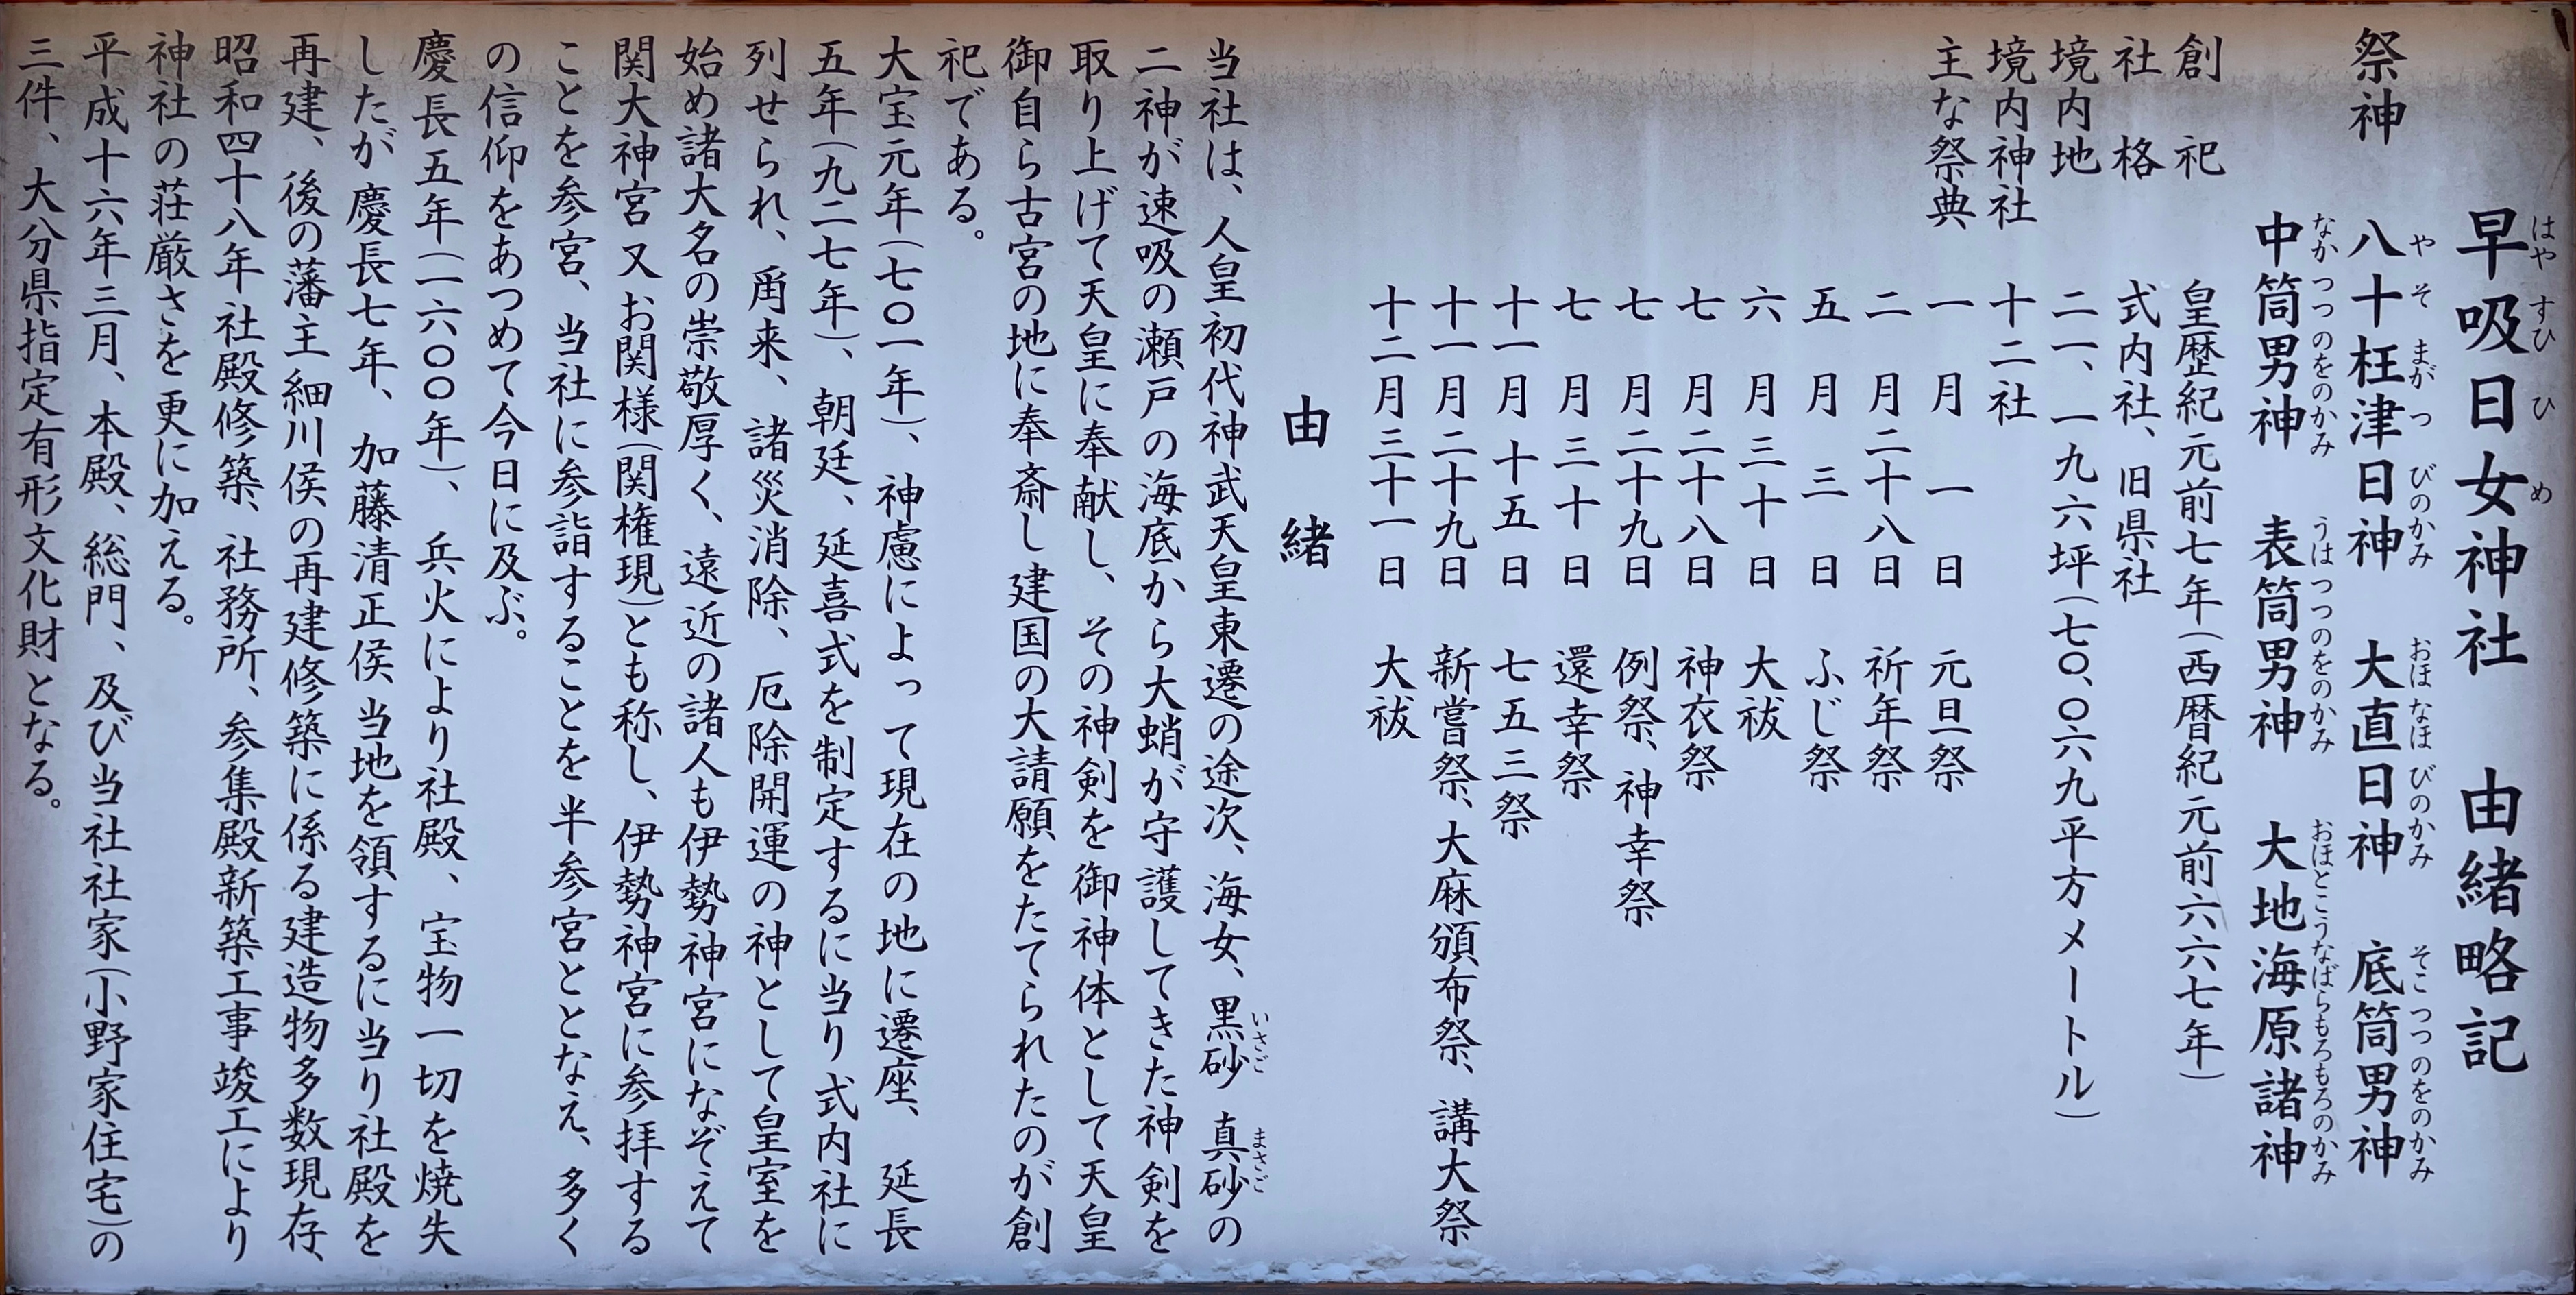 早吸日女神社　由緒略記
はや すひ ひ め
祭神　八十枉津日神　大直日神　底筒男神
や そ まが つ びのかみ　おほ なほ びのかみ　そこ つつ のをのかみ
中筒男神　表筒男神　大地海原諸神
なか つつ のをのかみ　うは つつ のをのかみ　おほとこうなばらもろもろのかみ
創祀　皇歴紀元前七年(西暦紀元前六六七年)
社格　式内社、旧県社
境内地　二一、一九六坪(七〇、〇六九平方メートル)
境内神社　十二社
主な祭典　一月一日　元旦祭
二月二十八日　祈年祭
五月三日　ふじ祭
六月三十日　大祓
七月二十八日　神衣祭
七月二十九日　例祭、神幸祭
七月三十日　還幸祭
十一月十五日　七五三祭
十一月二十九日　新嘗祭、大麻頒布祭、講大祭
十二月三十一日　大祓
由緒
当社は、人皇初代神武天皇東遷の途次、海女、黒砂　真砂の
いさご　まさご
二神が速吸の瀬戸の海底から大蛸が守護してきた神剣を
取り上げて天皇に奉献し、その神剣を御神体として天皇
御自ら古宮の地に奉斎し建国の大請願をたてられたのが創
祀である。
大宝元年(七〇一年)、神慮によって現在の地に遷座、延長
五年(九二七年)、朝廷、延喜式を制定するに当り式内社に
列せられ、爾来、諸災消除、厄除開運の神として皇室を
始め諸大名の崇敬厚く、遠近の諸人も伊勢神宮になぞえて
関大神宮又お関様(関権現)とも称し、伊勢神宮に参拝する
ことを参宮、当社に参詣することを半参宮ととなえ、多く
の信仰をあつめて今日に及ぶ。
慶長五年(一六〇〇年)、兵火により社殿、宝物一切を焼失
したが慶長七年、加藤清正侯当地を領するに当り社殿を
再建、後の藩主細川侯の再建修築に係る建造物多数現存、
昭和四十八年社殿修築、社務所、参集殿新築工事竣工により
神社の荘厳さを更に加える。
平成十六年三月、本殿、総門、及び当社社家(小野家住宅)の
三件、大分県指定有形文化財となる。